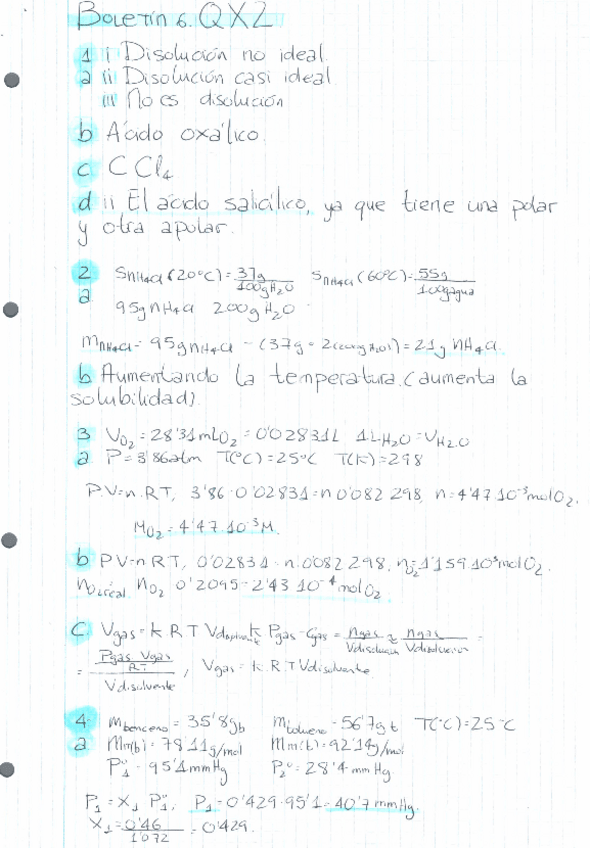 Boletín 6. QX2
1 i Disolución no ideal.
a ii Disolución casi ideal
iii No es disolución
b Ácido oxálico.
c CCl4
d ii El ácido salicílico, ya que tiene una polar
y otra apolar.
2 SNH4Cl (20°C) = 37g/100gH2O SNH4Cl (60°C) = 55g/100gagua
a 95g NH4Cl 200g H2O
mNH4Cl = 95g NH4Cl - (37g · 2(200g H2O)) = 21g NH4Cl.
b Aumentando la temperatura. (aumenta la
solubilidad).
3 VO2 = 28'31 mL O2 = 0'02831L 1L H2O = VH2O
a P = 3'86atm T(°C) = 25°C T(K) = 298
P.V = n.RT, 3'86 · 0'02831 = n 0'082 298, n = 4'47.10-3 mol O2.
MO2 = 4'47.10-3 M.
b PV = nRT, 0'02831 = n.0'082 298, nO2 = 1'159 10-3 mol O2.
nO2real = nO2 0'2095 = 2'43 10-4 mol O2
c Vgas = k R T Vdisolvente k Pgas = Cgas = ngas/Vdisolución ≈ ngas/Vdisolvente =
= Pgas Vgas/RT / Vdisolvente, Vgas = k.RT Vdisolvente
4 mbenceno = 35'8g b mtolueno = 56'7g t T(°C) = 25°C
a Mm(b) = 78'11g/mol Mm(b) = 92'14g/mol
P1° = 95'1 mmHg P2° = 28'4 mmHg.
P1 = X1 P1°, P1 = 0'429.95'1 = 40'7 mmHg.
X1 = 0'46/1'072 = 0'429.